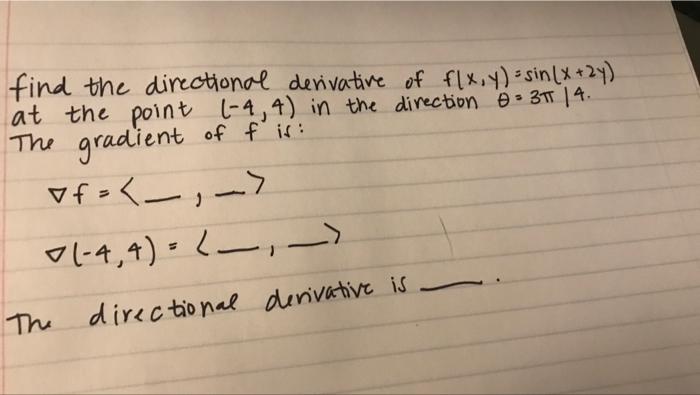 find the directional derivative of f(x,y)=sin(x+2y)
at the point (-4,4) in the direction θ=3π/4.
The gradient of f is:
∇f = <__, __>
∇(-4,4) = <__, __>
The directional derivative is ___.